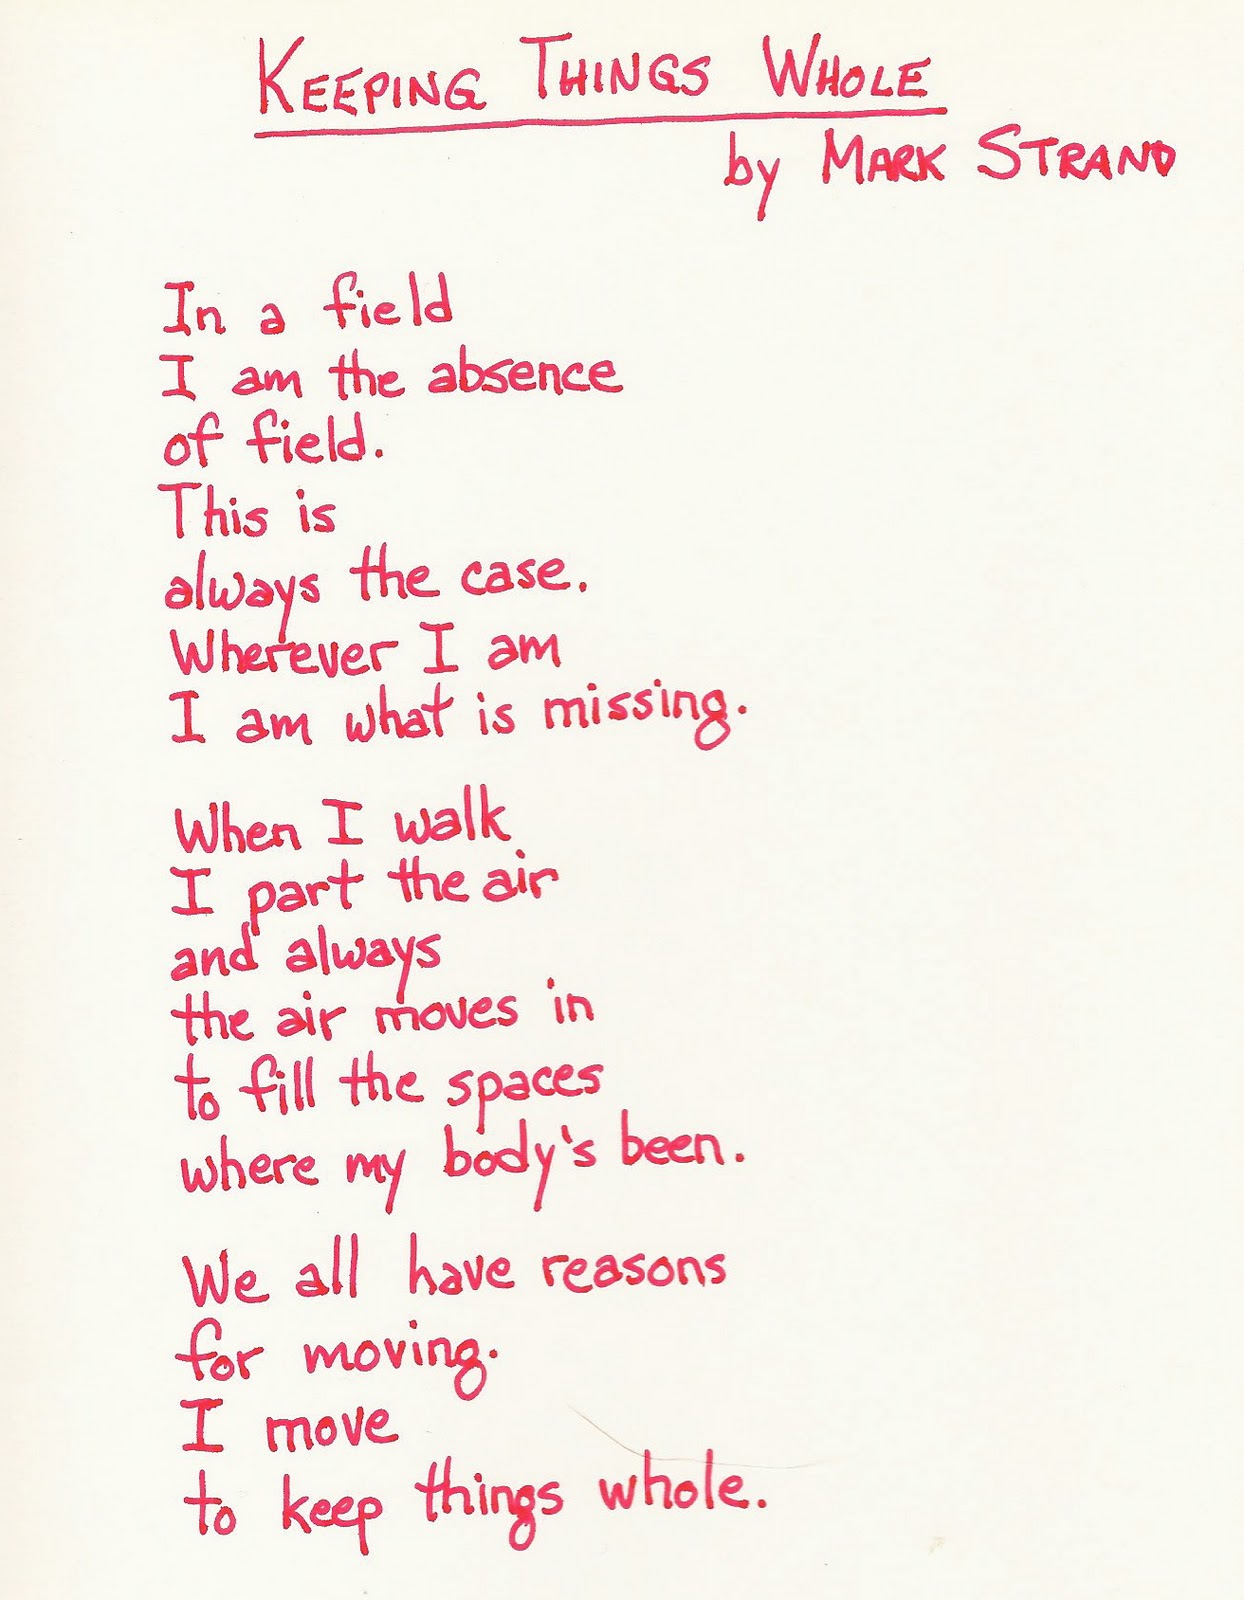 KEEPING THINGS WHOLE
by MARK STRAND
In a field
I am the absence
of field.
This is
always the case.
Wherever I am
I am what is missing.
When I walk
I part the air
and always
the air moves in
to fill the spaces
where my body's been.
We all have reasons
for moving.
I move
to keep things whole.